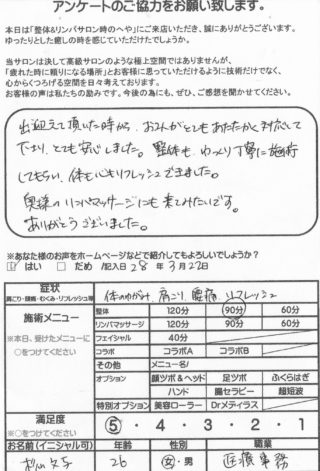 アンケートのご協力をお願い致します。
本日は「整体&リンパサロン時のへや」にご来店いただき、誠にありがとうございます。
ゆったりとした癒しの時を感じていただけたでしょうか。
当サロンは決して高級サロンのような極上空間ではありませんが、
「疲れた時に頼りになる場所」とお客様に思っていただけるように技術だけでなく、
心からくつろげる空間を日々考えております。
お客様の声は私たちの励みです。今後の為にも、ぜひ、ご感想を聞かせてください。
出迎えて頂いた時から、お二人がとてもあたたかく対応して
下さり、とても安心しました。整体も、ゆっくり丁寧に施術
してもらい、体も心もリフレッシュできました。
奥様のリンパマッサージにも来てみたいです。
ありがとうございました。
※あなた様のお声をホームページなどで紹介してもよろしいでしょうか?
☑ はい □ だめ /記入日 28 年 3 月 22日
症状
肩こり・頭痛・むくみ・リフレッシュ等
体のゆがみ 肩こり 腰痛 リフレッシュ
施術メニュー
※本日、受けたメニューに
○をつけてください
整体 120分 90分 60分
リンパマッサージ 120分 90分 60分
フェイシャル 40分
コラボ コラボA コラボB
その他 メニュー名/
オプション 顔ツボ&ヘッド 足ツボ ふくらはぎ
ハンド 腸セラピー 超短波
特別オプション 美容ローラー Drメディラス
満足度
※○をつけてください
5・4・3・2・1
お名前(イニシャル可) 年齢 性別 職業
26 女・男 医療事務